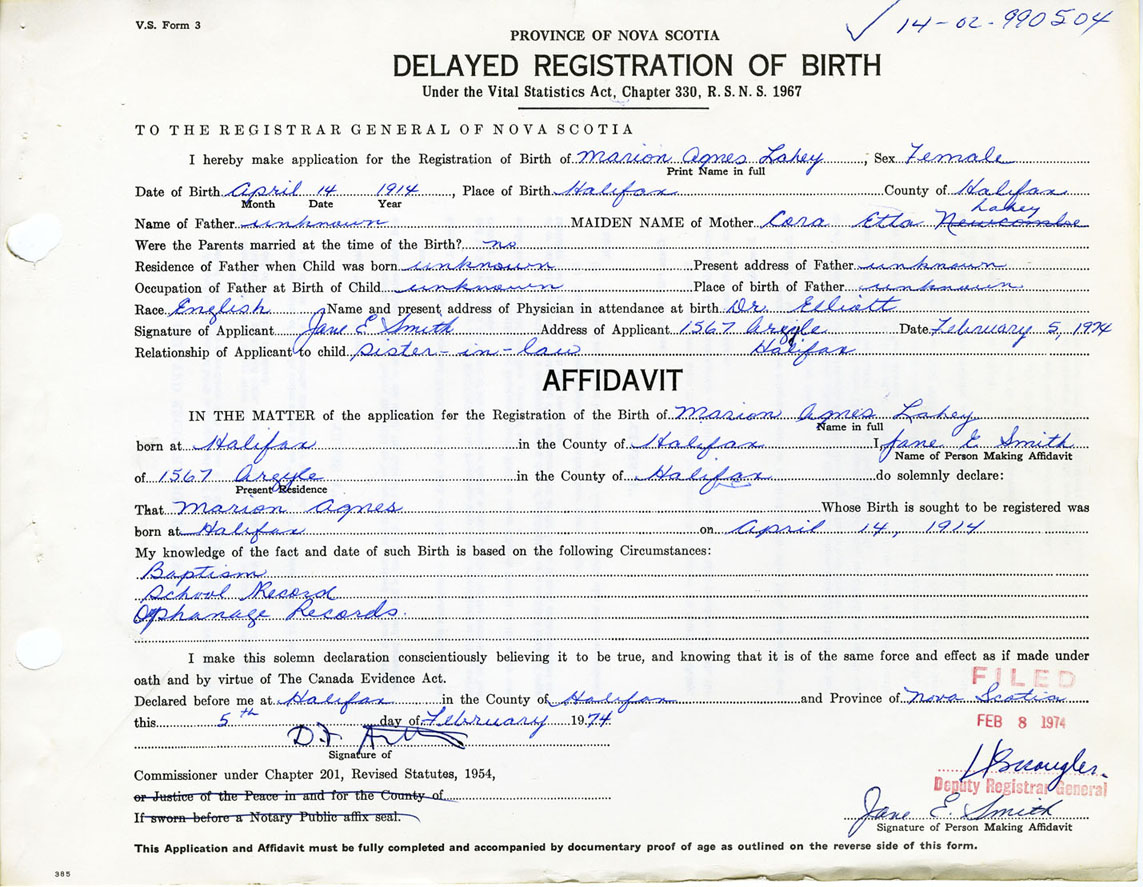 V.S. Form 3
✓ 14-02-990504
PROVINCE OF NOVA SCOTIA
DELAYED REGISTRATION OF BIRTH
Under the Vital Statistics Act, Chapter 330, R. S. N. S. 1967
TO THE REGISTRAR GENERAL OF NOVA SCOTIA
I hereby make application for the Registration of Birth of Marion Agnes Lahey, Sex Female
Print Name in full
Date of Birth April 14 1914, Place of Birth Halifax County of Halifax
Month Date Year
Lahey
Name of Father unknown MAIDEN NAME of Mother Cora Etta Newcombe
Were the Parents married at the time of the Birth? no
Residence of Father when Child was born unknown Present address of Father unknown
Occupation of Father at Birth of Child unknown Place of birth of Father unknown
Race English Name and present address of Physician in attendance at birth Dr. Elliott
Signature of Applicant Jane E Smith Address of Applicant 1567 Argyle Date February 5, 1974
Relationship of Applicant to child sister-in-law Halifax
AFFIDAVIT
IN THE MATTER of the application for the Registration of the Birth of Marion Agnes Lahey
Name in full
born at Halifax in the County of Halifax I, Jane E Smith
Name of Person Making Affidavit
of 1567 Argyle in the County of Halifax do solemnly declare:
Present Residence
That Marion Agnes Whose Birth is sought to be registered was
born at Halifax on April 14, 1914
My knowledge of the fact and date of such Birth is based on the following Circumstances:
Baptism
School Record
Orphanage Records.
I make this solemn declaration conscientiously believing it to be true, and knowing that it is of the same force and effect as if made under
oath and by virtue of The Canada Evidence Act.
FILED
Declared before me at Halifax in the County of Halifax and Province of Nova Scotia
this 5th day of February 1974
FEB 8 1974
Signature of
Commissioner under Chapter 201, Revised Statutes, 1954,
or Justice of the Peace in and for the County of
Deputy Registrar General
If sworn before a Notary Public affix seal.
Jane E. Smith
Signature of Person Making Affidavit
This Application and Affidavit must be fully completed and accompanied by documentary proof of age as outlined on the reverse side of this form.
385